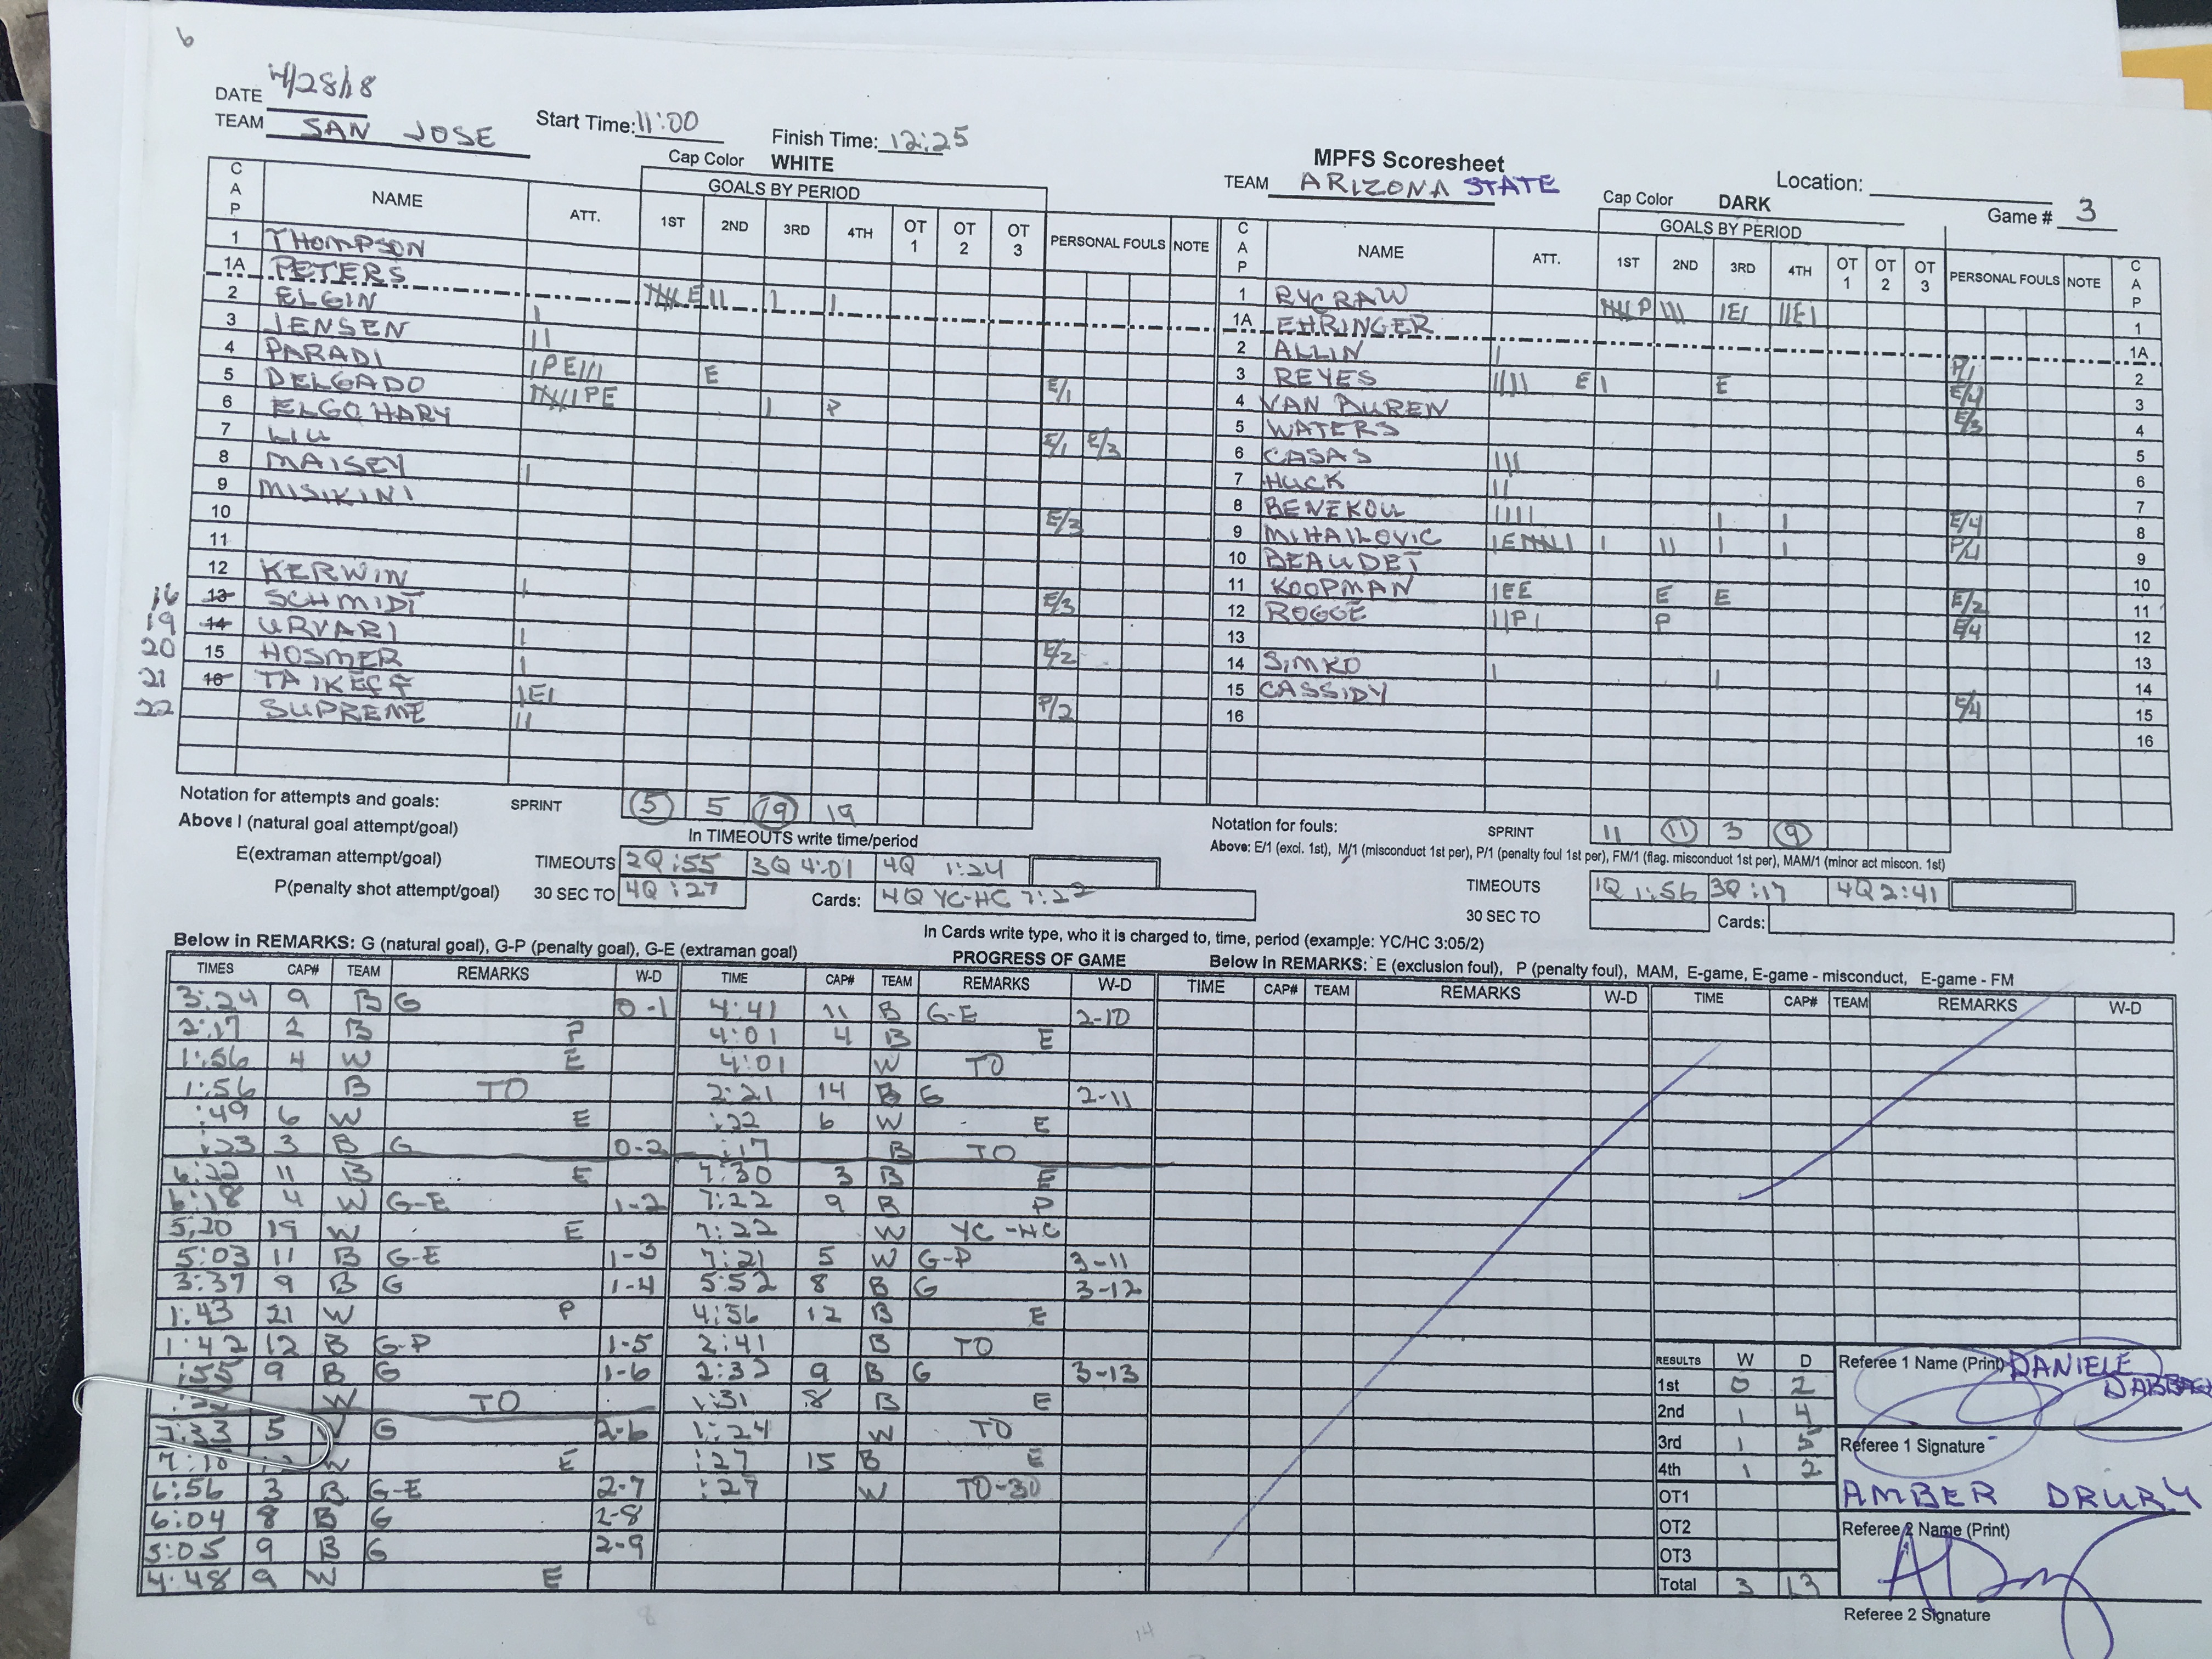 6
DATE 4/28/18
TEAM SAN JOSE Start Time: 11:00 Finish Time: 12:25
Cap Color WHITE
MPFS Scoresheet
TEAM ARIZONA STATE Cap Color DARK Location:
Game # 3
CAP NAME ATT. GOALS BY PERIOD 1ST 2ND 3RD 4TH OT 1 OT 2 OT 3 PERSONAL FOULS NOTE
1 THOMPSON
1A PETERS
2 ELGIN I
3 JENSEN II
4 PARADI IPEIII E E/1
5 DELGADO PE I P
6 ELGOHARY E/1 E/3
7 LIU
8 MAISEY I
9 MISIKINI E/3
10
11
12 KERWIN I E/3
16 13 SCHMIDT
19 14 URVARI I E/2
20 15 HOSMER I
21 16 TAIKEFF IEI P/2
22 SUPREME II
CAP NAME ATT. GOALS BY PERIOD 1ST 2ND 3RD 4TH OT 1 OT 2 OT 3 PERSONAL FOULS NOTE CAP
1 RYCRAW 1
1A EHRINGER 1A
2 ALLIN I P/1 2
3 REYES IIII E I E E/4 3
4 VAN BUREN E/3 4
5 WATERS 5
6 CASAS III 6
7 HUCK II 7
8 BENEKOU IIII I I E/4 8
9 MIHAILOVIC I II I I P/4 9
10 BEAUDET 10
11 KOOPMAN IEE E E E/2 11
12 ROGGE IIPI P E/4 12
13 13
14 SIMKO I I 14
15 CASSIDY E/4 15
16 16
Notation for attempts and goals: SPRINT 5 5 19 19
Above I (natural goal attempt/goal) In TIMEOUTS write time/period
E(extraman attempt/goal) TIMEOUTS 2Q :55 3Q 4:01 4Q 1:24
P(penalty shot attempt/goal) 30 SEC TO 4Q :27 Cards: 4Q YC-HC 7:22
Notation for fouls: SPRINT 11 11 3 9
Above: E/1 (excl. 1st), M/1 (misconduct 1st per), P/1 (penalty foul 1st per), FM/1 (flag. misconduct 1st per), MAM/1 (minor act miscon. 1st)
TIMEOUTS 1Q 1:56 3Q :17 4Q 2:41
30 SEC TO Cards:
In Cards write type, who it is charged to, time, period (example: YC/HC 3:05/2)
Below in REMARKS: G (natural goal), G-P (penalty goal), G-E (extraman goal) PROGRESS OF GAME Below in REMARKS: E (exclusion foul), P (penalty foul), MAM, E-game, E-game - misconduct, E-game - FM
TIMES CAP# TEAM REMARKS W-D TIME CAP# TEAM REMARKS W-D TIME CAP# TEAM REMARKS W-D TIME CAP# TEAM REMARKS W-D
3:24 9 B G 0-1 4:41 11 B G-E 2-10
2:17 2 B P 4:01 4 B E
1:56 4 W E 4:01 W TO
1:56 B TO 2:21 14 B G 2-11
:49 6 W E :22 6 W E
:23 3 B G 0-2 :17 B TO
6:22 11 B E 7:30 3 B E
6:18 4 W G-E 1-2 7:22 9 B P
5:20 19 W E 7:22 W YC-HC
5:03 11 B G-E 1-3 7:21 5 W G-P 3-11
3:37 9 B G 1-4 5:52 8 B G 3-12
1:43 21 W P 4:56 12 B E
1:42 12 B G-P 1-5 2:41 B TO
:55 9 B G 1-6 2:32 9 B G 3-13
W TO 1:31 8 B E
7:33 5 W G 2-6 1:24 W TO
7:10 W E :27 15 B E
6:56 3 B G-E 2-7 :27 W TO-30
6:04 8 B G 2-8
5:05 9 B G 2-9
4:48 9 W E
RESULTS W D
1st 0 2
2nd 1 4
3rd 1 5
4th 1 2
OT1
OT2
OT3
Total 3 13
Referee 1 Name (Print) DANIELE
Referee 1 Signature
AMBER DRURY
Referee 2 Name (Print)
Referee 2 Signature
8
14